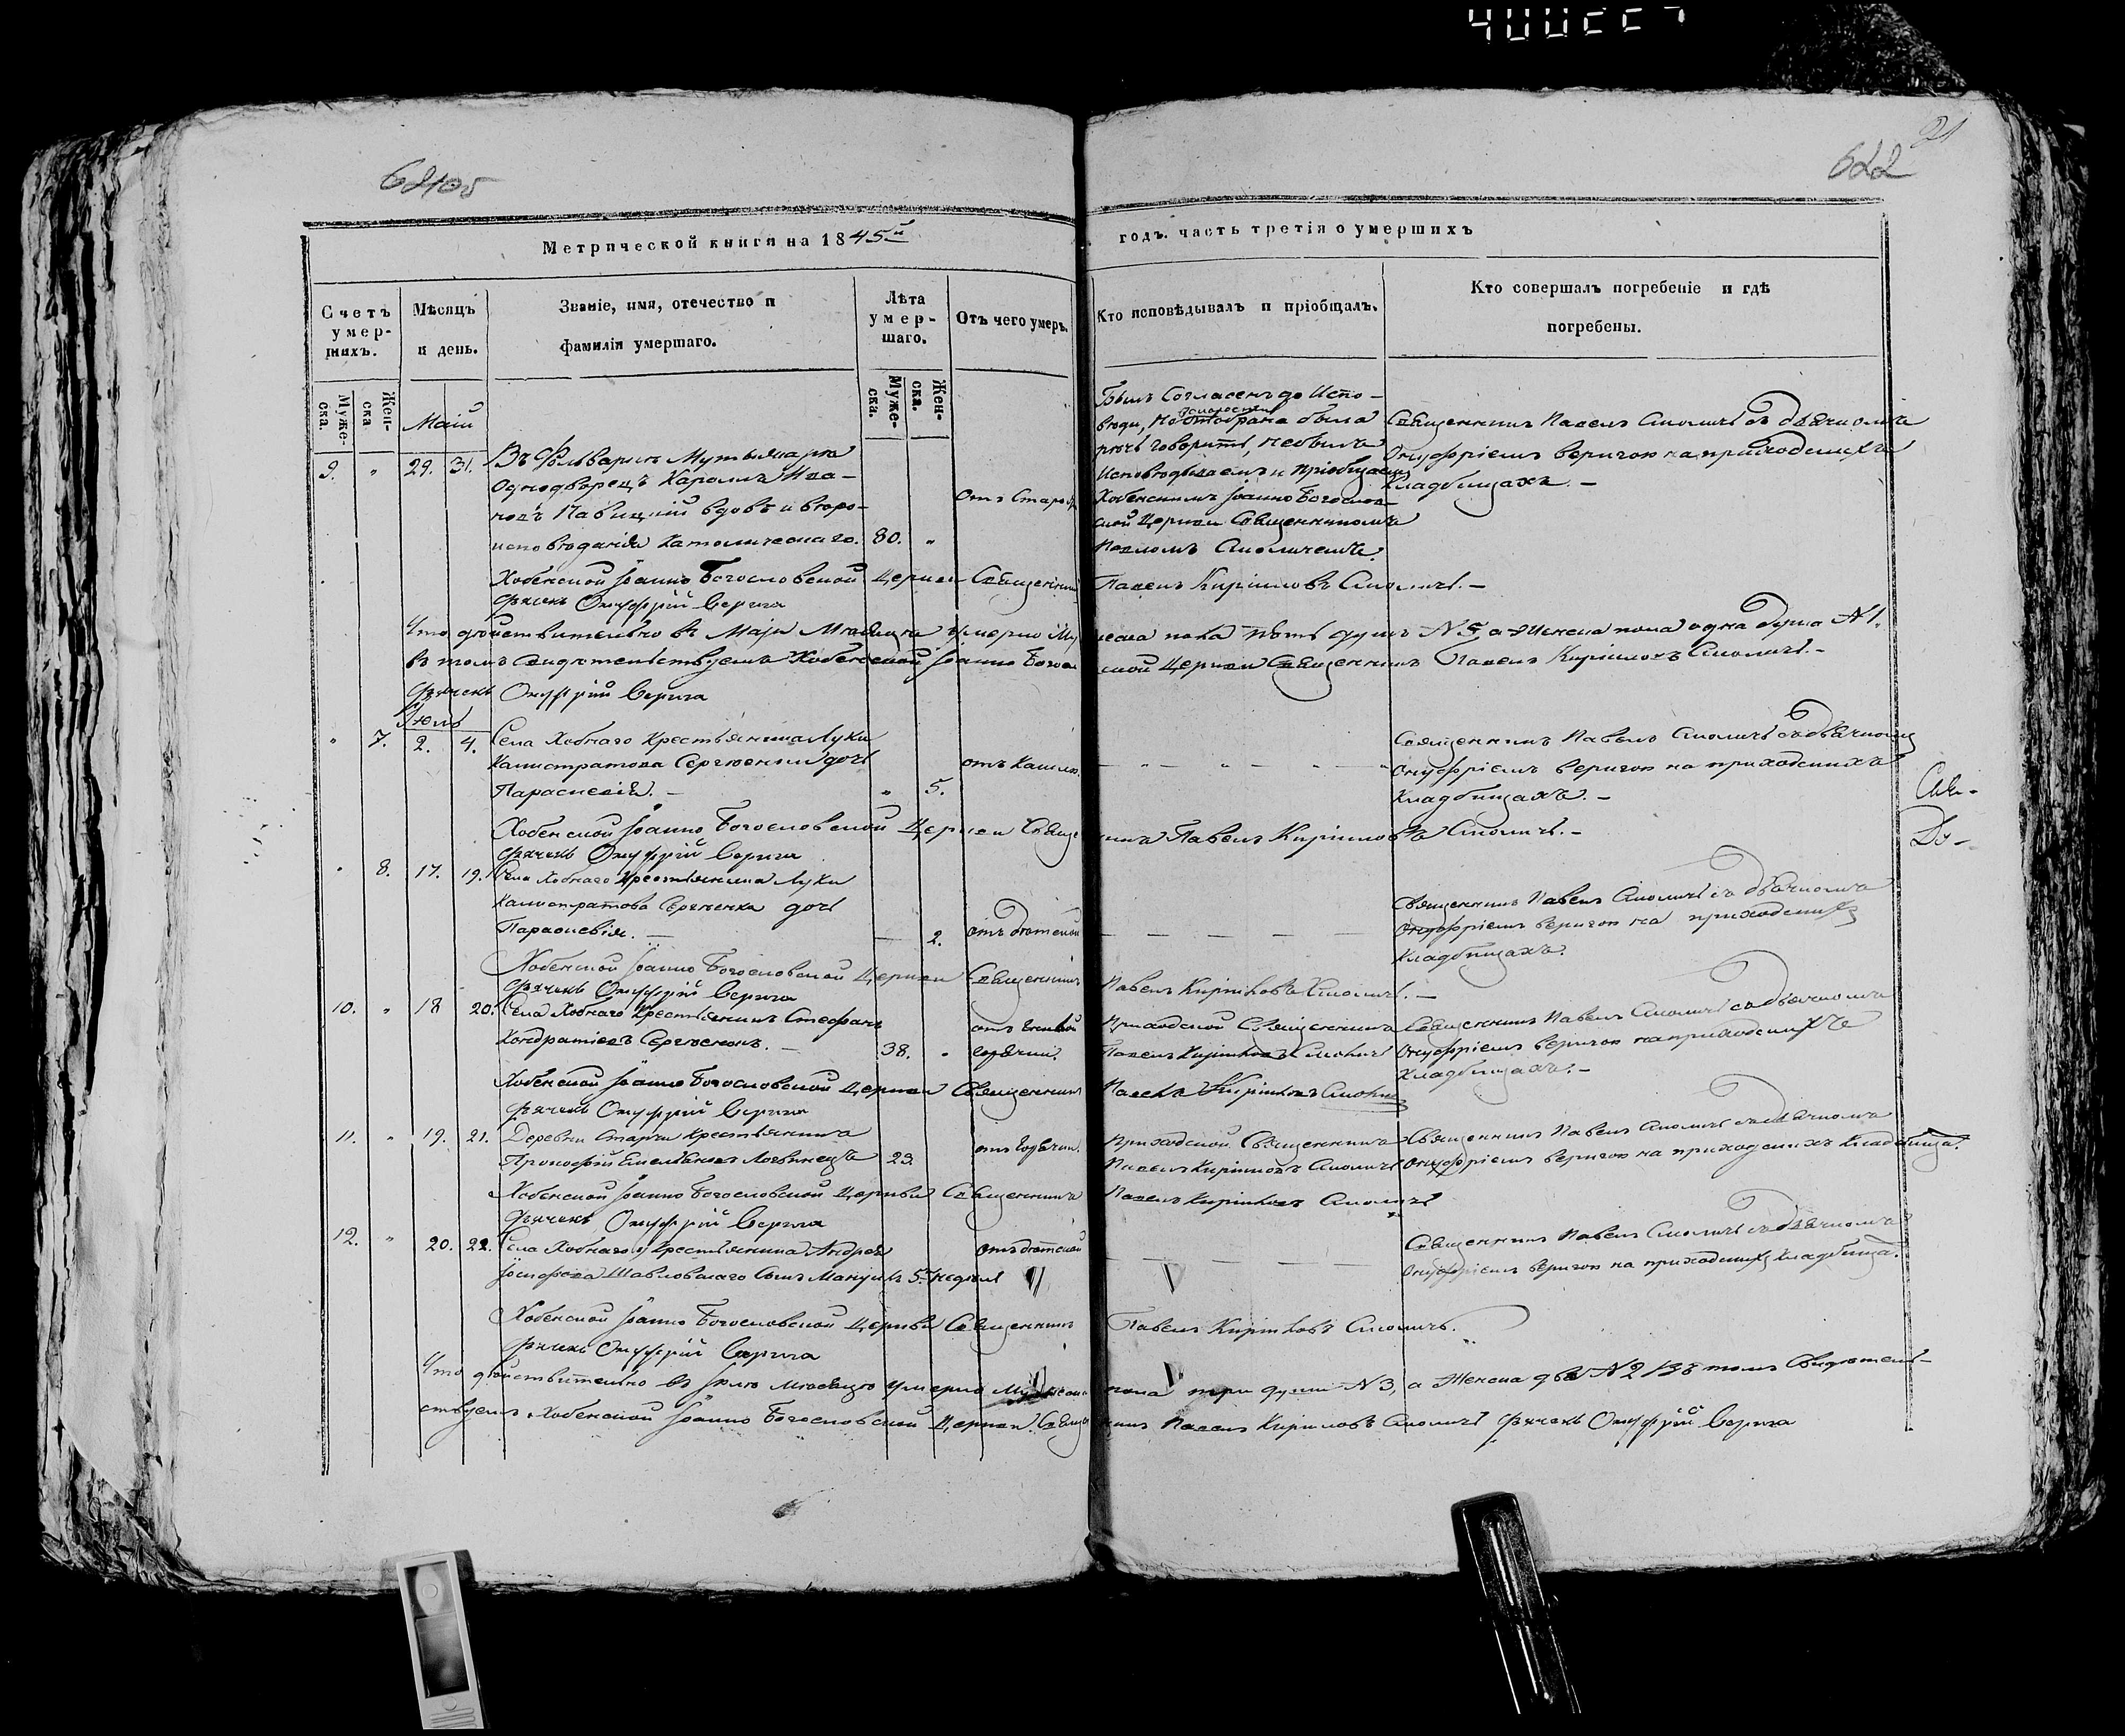 622
21
Метрической книги на 1845й
годъ. часть третія о умершихъ
Счетъ умер-шихъ.
Муже-ска.
Жен-ска
Мѣсяцъ и день.
Званіе, имя, отечество и фамилія умершаго.
Лѣта умер-шаго.
Муже-ска.
Жен-ска.
Отъ чего умеръ.
Кто исповѣдывалъ и пріобщалъ.
Кто совершалъ погребеніе и гдѣ погребены.
Маій
9. " 29. 31. Въ Фольваркѣ
Однодворецъ Каролъ Ива-
новъ вдовъ и
исповѣданія Католическаго. 80. "
Отъ Старо
Былъ Согласенъ до Испо-
была
рѣчь говорить, небылъ
Исповѣдываемъ и Пріобщаемъ
Хобенскимъ Іоанно Богослов-
ской Церкви Священникомъ
Павломъ Смоличемъ.
Священникъ Павелъ Смоличъ съ дьячкомъ
Онуфріемъ Веригою на приходскихъ
Кладбищахъ. -
Хобенской Іоанно Богословской Церкви Священникъ Павелъ Кириловъ Смоличъ. -
Дьячекъ Онуфрій Верига
Что дѣйствительно въ Маіи Мѣсяцѣ умерло Мужеска пола пять душъ №5, а Женска пола одна душа №1.
въ томъ Свидѣтельствуемъ Хобенской Іоанно Богословской Церкви Священникъ Павелъ Кириловъ Смоличъ. -
Дьячекъ Онуфрій Верига
" 7. 2. 4. Села Хобнаго Крестьянина Луки
Калистратова дочь
Параскевія. - " 5.
отъ Кашлю.
Священникъ Павелъ Смоличъ съ дьячкомъ
Онуфріемъ Веригою на приходскихъ
Кладбищахъ. -
Хобенской Іоанно Богословской Церкви Священникъ Павелъ Кириловъ Смоличъ. -
Дьячекъ Онуфрій Верига
" 8. 17. 19. Села Хобнаго Крестьянина Луки
Калистратова Сергѣенка дочь
Параскевія. - 2.
отъ дѣтской
Священникъ Павелъ Смоличъ съ дьячкомъ
Онуфріемъ Веригою на приходскихъ
Кладбищахъ.
Хобенской Іоанно Богословской Церкви Священникъ Павелъ Кириловъ Смоличъ. -
Дьячекъ Онуфрій Верига
10. " 18 20. Села Хобнаго Крестьянинъ Стефанъ
Кондратіевъ - 38. "
отъ
горячки.
Приходской Священникъ
Павелъ Кириловъ Смоличъ
Священникъ Павелъ Смоличъ съ дьячкомъ
Онуфріемъ Веригою на приходскихъ
Кладбищахъ. -
Хобенской Іоанно Богословской Церкви Священникъ Павелъ Кириловъ Смоличъ
Дьячекъ Онуфрій Верига
11. " 19. 21. Деревни Крестьянинъ
Прокофій Емельяновъ 23.
отъ Горячки.
Приходской Священникъ
Павелъ Кириловъ Смоличъ
Священникъ Павелъ Смоличъ съ дьячкомъ
Онуфріемъ Веригою на приходскихъ Кладбища.
Хобенской Іоанно Богословской Церкви Священникъ Павелъ Кириловъ Смоличъ
Дьячекъ Онуфрій Верига
12. " 20. 22. Села Хобнаго Крестьянина Андрея
Іосифова Сынъ 5. недѣль
отъ дѣтской
Священникъ Павелъ Смоличъ съ дьячкомъ
Онуфріемъ Веригою на приходскихъ Кладбища.
Хобенской Іоанно Богословской Церкви Священникъ Павелъ Кириловъ Смоличъ.
Дьячекъ Онуфрій Верига
Что дѣйствительно въ мѣсяцѣ умерло Мужеска пола три души №3, а Женска двѣ №2 въ томъ Свидѣтель-
ствуемъ Хобенской Іоанно Богословской Церкви Священникъ Павелъ Кириловъ Смоличъ Дьячекъ Онуфрій Верига